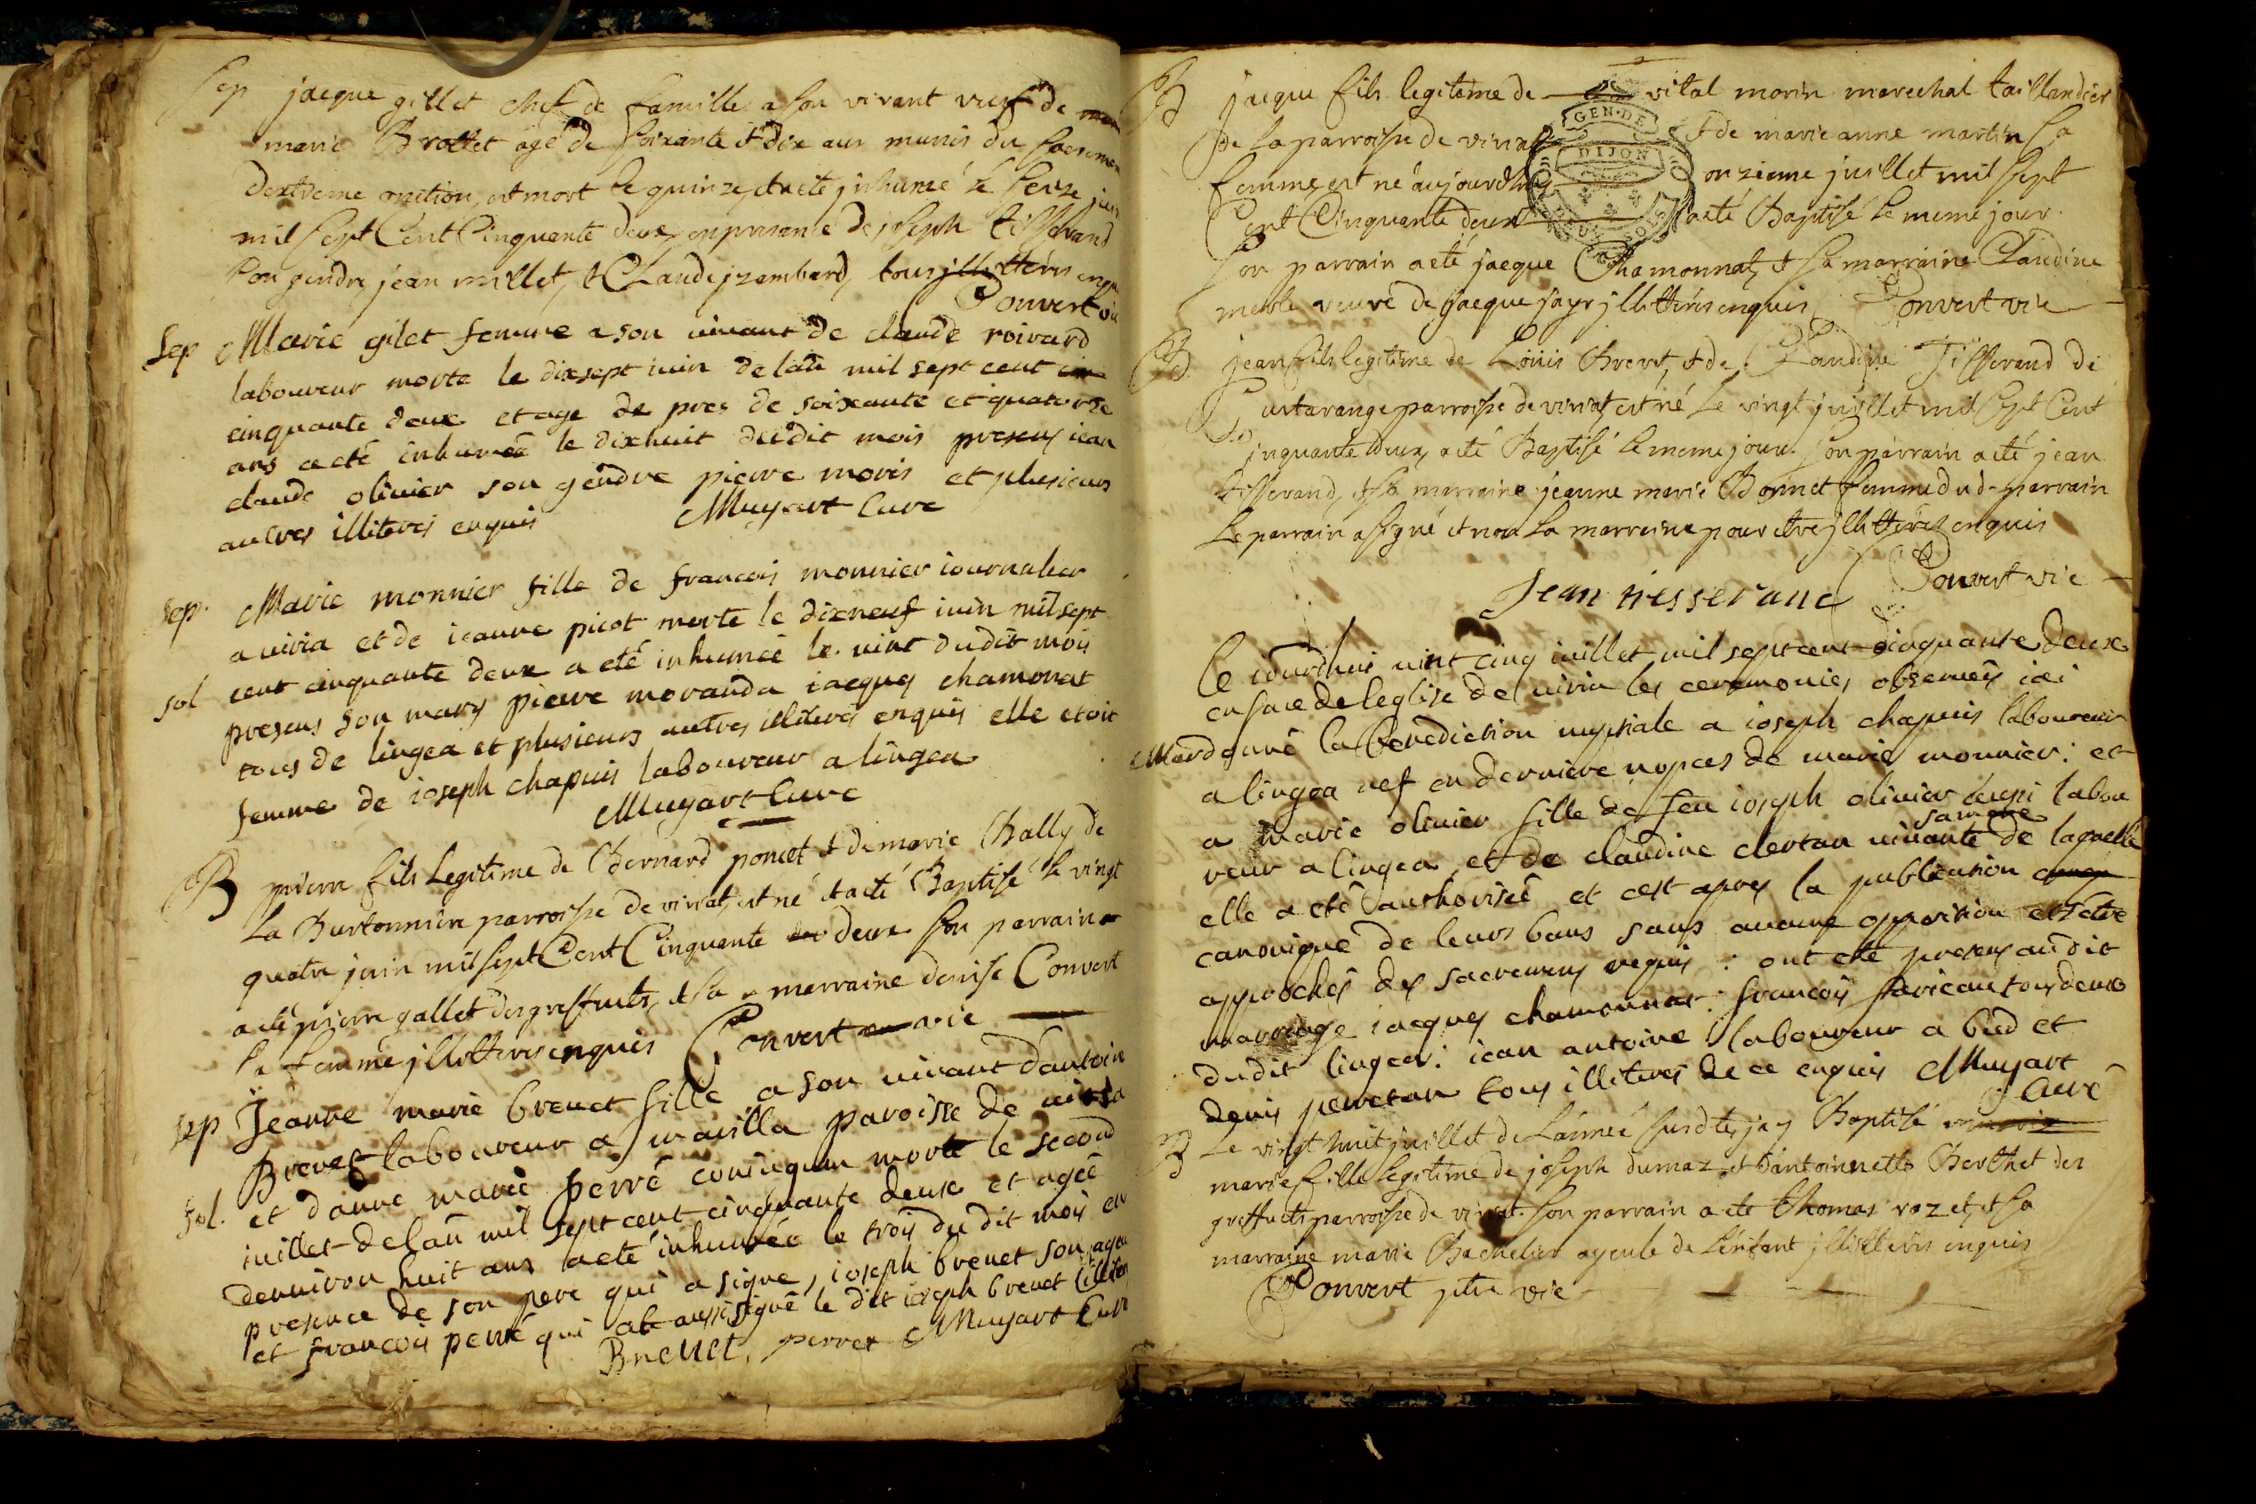 Sep jacque gillet chef de famille a son vivant veuf de
marie Brottet agé de soixante et dix ans munis du sacremen
dextreme onction, est mort le quinze, et a eté jnhumé le seize juin
mil sept Cent Cinquante deux, en presence de joseph tisserand
son gendre, jean millet, et Claude jzembard, tous jllitterés enquis
Convert vic
Sep Marie gilet femme a son vivant de claude roivard
laboureur morte le dixsept iuin de lan mil sept cent
cinquante deux et age de pres de soixante et quatorze
ans a eté inhumeé le dixhuit dudit mois presens iean
claude olivier son gendre pierre moris et plusieurs
autres illiteres enquis Muyart Cure
sep. Marie monnier fille de francois monnier iournalier
a viria et de ieanne picot morte le dixneuf iuin mil sept
cent cinquante deux a eté inhumeé le vint dudit mois
sol presens son mary pierre moranda iacques chamonat
tous de lingea et plusieurs autres illiterés enquis elle etoit
femme de ioseph chapuis laboureur a lingea
Muyart Cure
B pierre fils legitime de Bernard poncet et de marie Bally de
la Burtonniere parroisse de viriat, est né et a eté Baptisé le vingt
quatre juin mil sept Cent Cinquante deux son parrain
a eté pierre gallet des greffets, et sa marraine denise Convert
sa femme jllitterés enquis Convert vic
sep Jeanne marie brevet fille a son vivant dantoin
Brevet laboureur a mavilla paroisse de viria
sol. et danne marie perré coniugum morte le second
iuillet de lan mil sept cent cinquante deux et ageé
denviron huit ans a eté inhumeé le trois du dit mois en
presence de son pere qui a signe, ioseph brevet son ayeul
et francois perré qui at aussi signé le dit ioseph brevet illiter
Brevet, perret Muyart Cure
B jacque fils legitime de vital morin marechal taillandier
de la parroisse de viriat et de marie anne martin sa
femme est né aujourdhuy onzieme juillet mil sept
Cent Cinquante deux et a eté Baptisé le meme jour.
son parrain a eté jacque Chamonnat, et sa marraine Claudine
merle veuve de jacque jayr jllitterés enquis Convert vic
B jean fils legitime de Loüis Brevet, et de Claudine Tisserand de
Curtarange parroisse de viriat, est né le vingt juillet mil sept Cent
Cinquante deux, a eté Baptisé le meme jour. son parrain a eté jean
tisserand, et sa marraine jeanne marie Bonnet femme dud. parrain
Le parrain a signé et non la marraine pour etre jllitteréz enquis
Jean tisserand Convert vic
Ce iourdhui vint cinq iuillet mil sept cent cinquante deux
en face de leglise de viria les ceremonies observeés iai
Mar donné la benediction nuptiale a ioseph chapuis laboureur
a lingea vef en derniere nopces de marie monnier: et
a marie olivier fille de feu ioseph olivier labou
sa mere
reur a lingea et de claudine clertan vivante de laquelle
elle a eté authoriseé et cest apres la publication
canonique de leurs bans sans aucune opposition et setre
approchés des sacremens requis: ont eté presens audit
marriage iacques chamonnat: francois favieau tous deux
dudit lingea: iean antoine laboureur a bud et
denis perretan tous illiteres de ce enquis Muyart
Curé
B Le vingt huit juillet de l'année susdte, jay Baptisé
marie fille legitime de joseph dumaz et dantoinette Berthet des
greffets parroisse de viriat. son parrain a eté thomas rozet, et sa
marraine marie Bachelier ayeule de l'enfant jllitterés enquis
Convert ptre vic
GEN·DE
DIJON